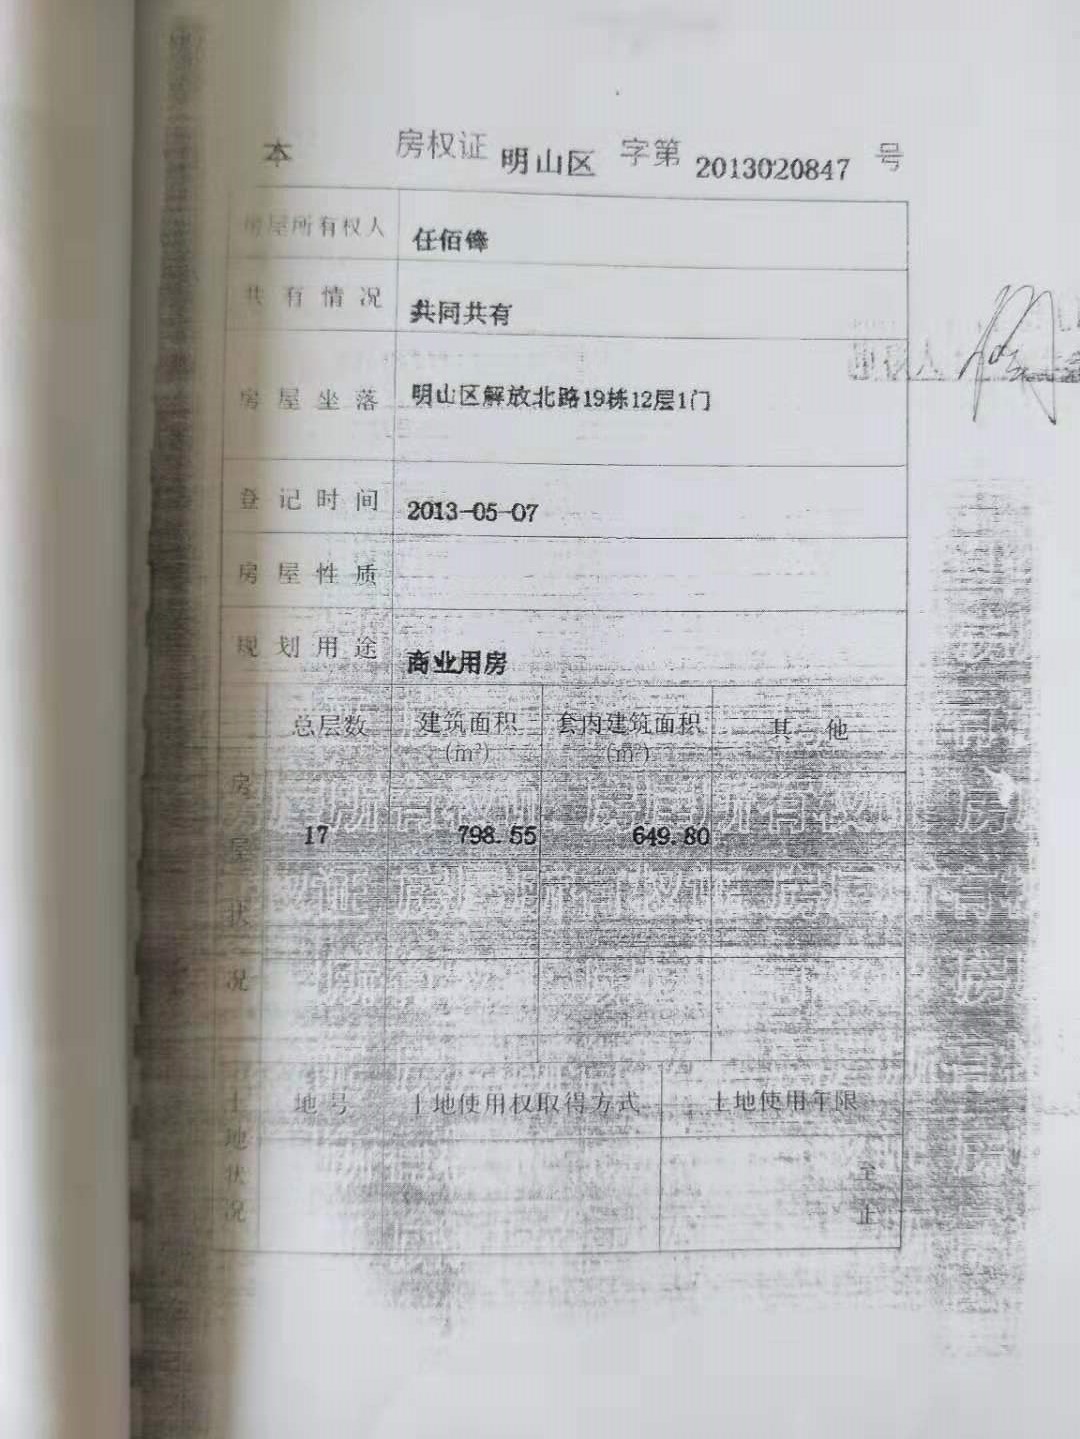 本 房权证 明山区 字第 2013020847 号
房屋所有权人 任佰锋
共有情况 共同共有
房屋坐落 明山区解放北路19栋12层1门
登记时间 2013-05-07
房屋性质
规划用途 商业用房
房屋状况
总层数 建筑面积(m²) 套内建筑面积(m²) 其他
17 798.55 649.80
土地状况
地号 土地使用权取得方式 土地使用年限
至
止